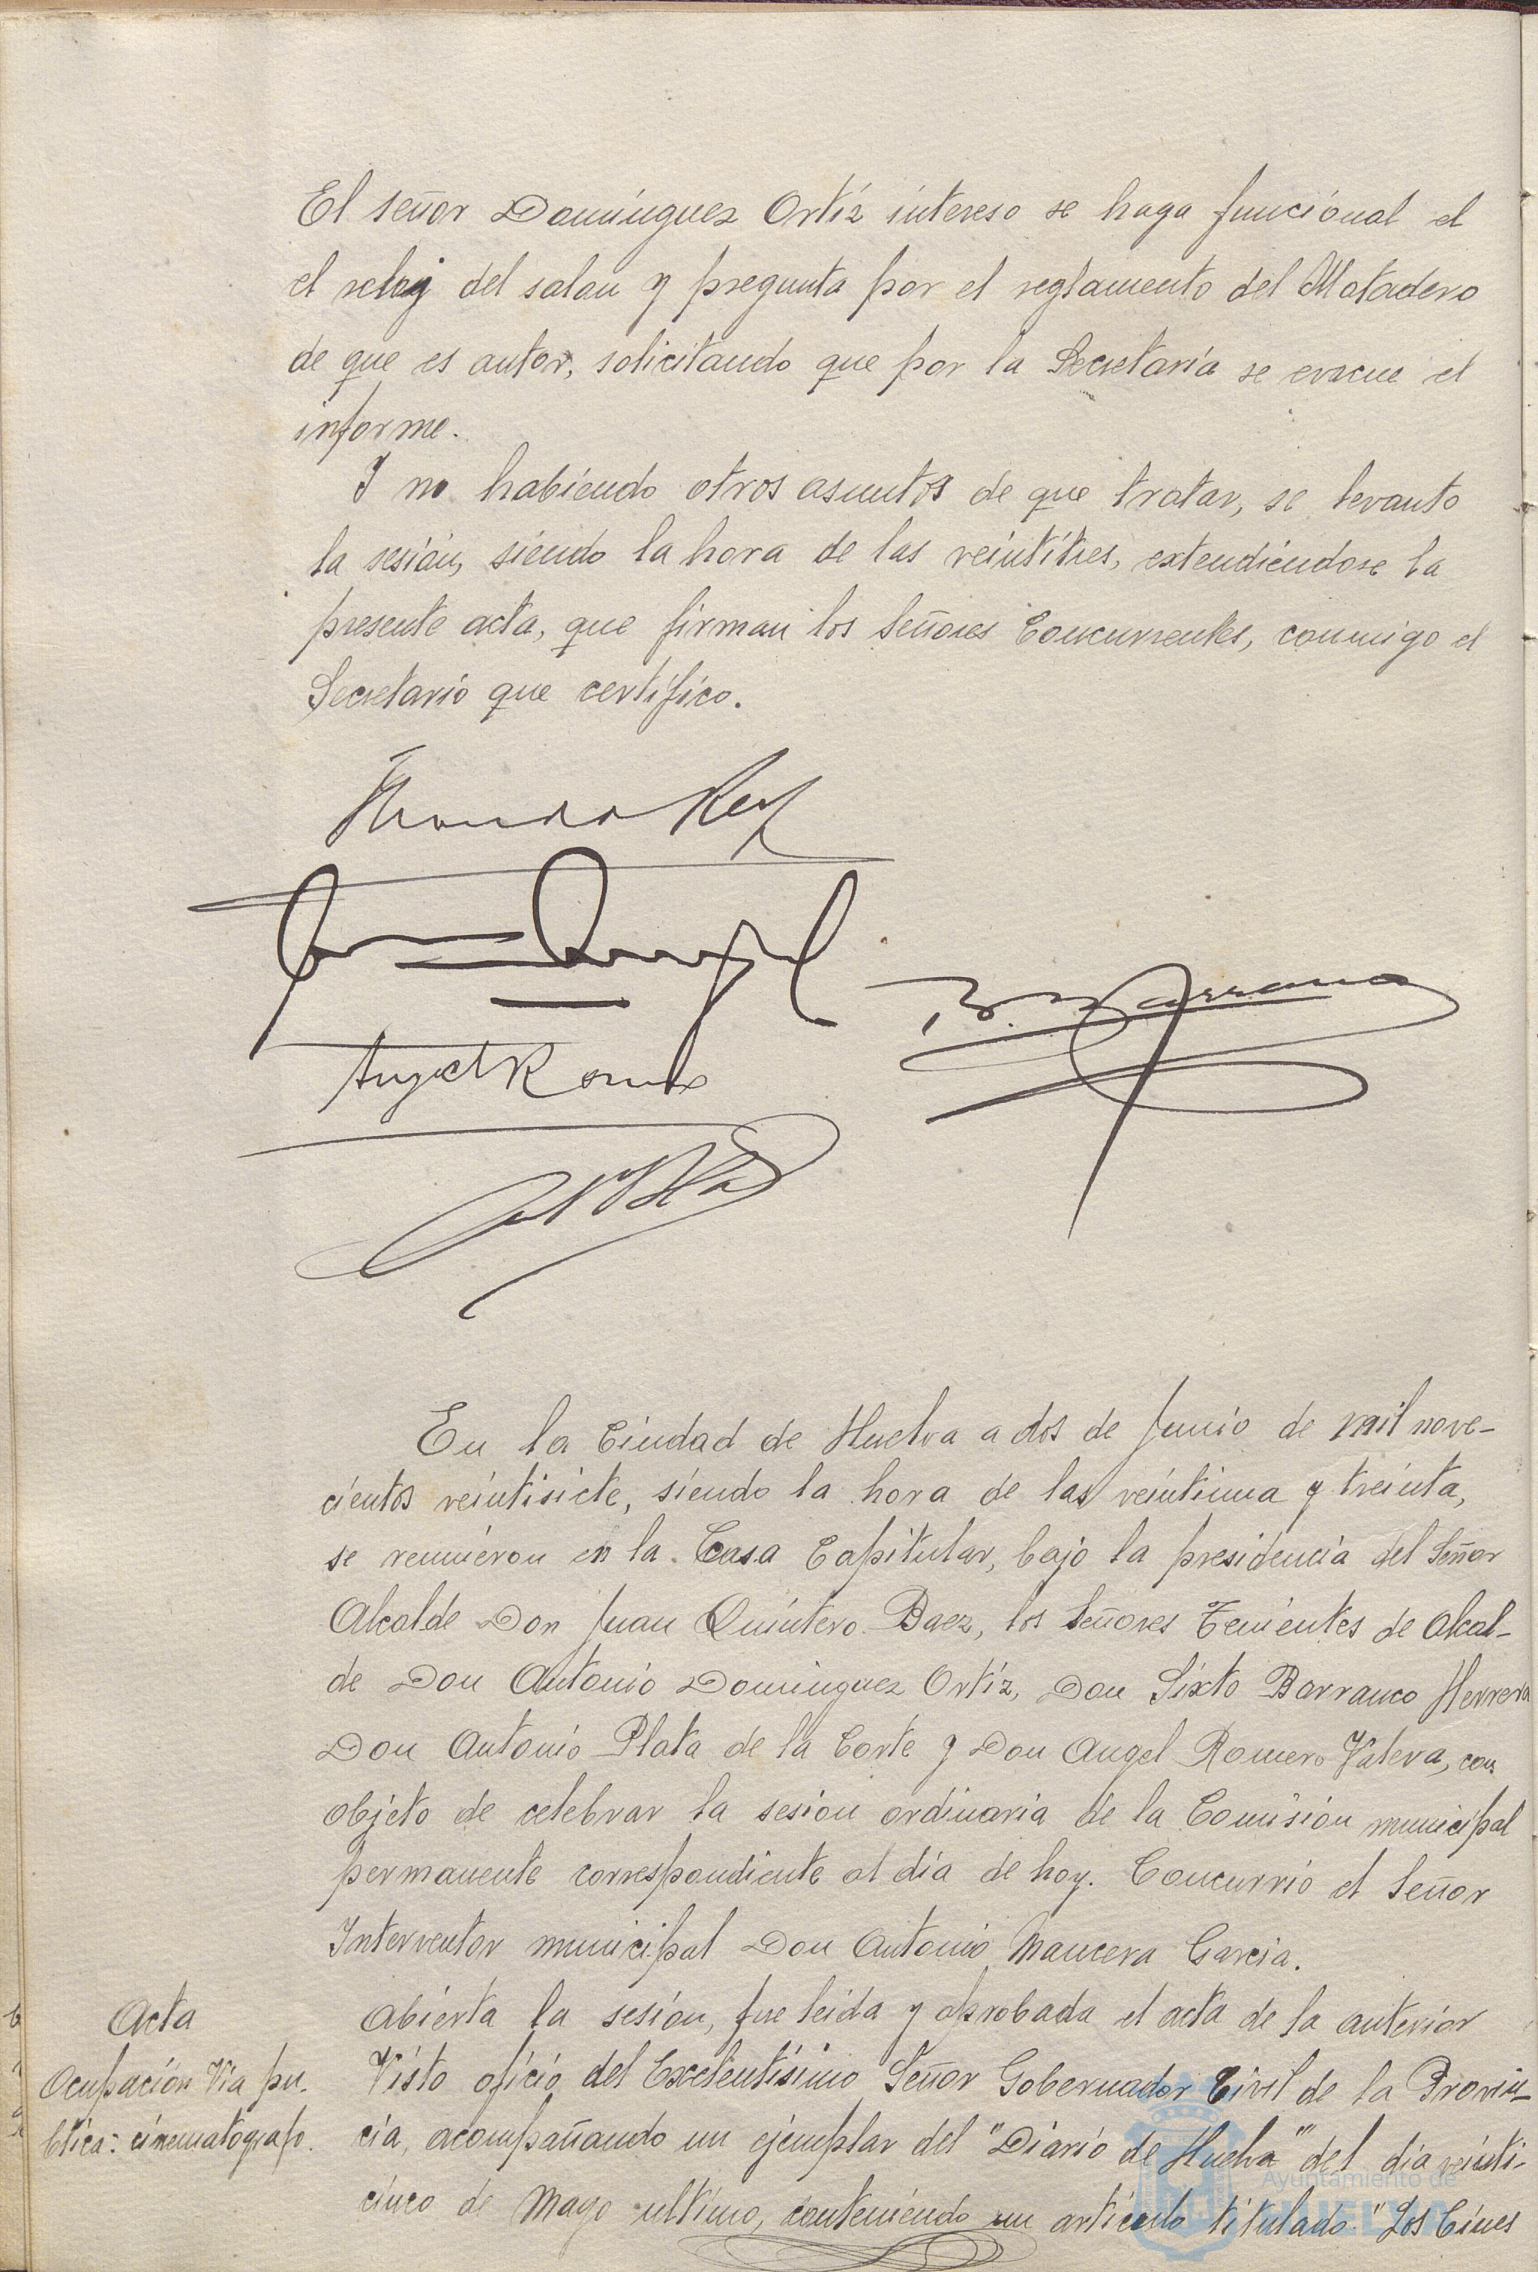 El señor Domínguez Ortíz intereso se haga funcional el
el reloj del salon y pregunta por el reglamento del Matadero
de que es autor, solicitando que por la Secretaría se evacue el
informe.
Y no habiendo otros asuntos de que tratar, se levanto
la sesión, siendo la hora de las veintitres, extendiéndose la
presente acta, que firman los Señores Concurrentes, conmigo el
Secretario que certifico.
Angel Romero
B. Barranco
En la Ciudad de Huelva a dos de Junio de mil nove-
cientos veintisiete, siendo la hora de las veintiuna y treinta,
se reunieron en la Casa Capitular, bajo la presidencia del Señor
Alcalde Don Juan Quintero Baez, los Señores Tenientes de Alcal-
de Don Antonio Dominguez Ortíz, Don Sixto Barranco Herrera
Don Antonio Plata de la Corte y Don Angel Romero Valera, con
objeto de celebrar la sesion ordinaria de la Comisión municipal
permanente correspondiente al día de hoy. Concurrió el Señor
Interventor municipal Don Antonio Mancera Garcia.
Acta
Abierta la sesión, fue leida y aprobada el acta de la anterior
Ocupación Via pu-
blica: cinematografo.
Visto oficio del Excelentísimo Señor Gobernador Civil de la Provin-
cia, acompañando un ejemplar del "Diario de Huelva" del dia veinti-
cinco de Mayo ultimo, conteniendo un artículo titulado "Los Cines
Ayuntamiento de
HUELVA